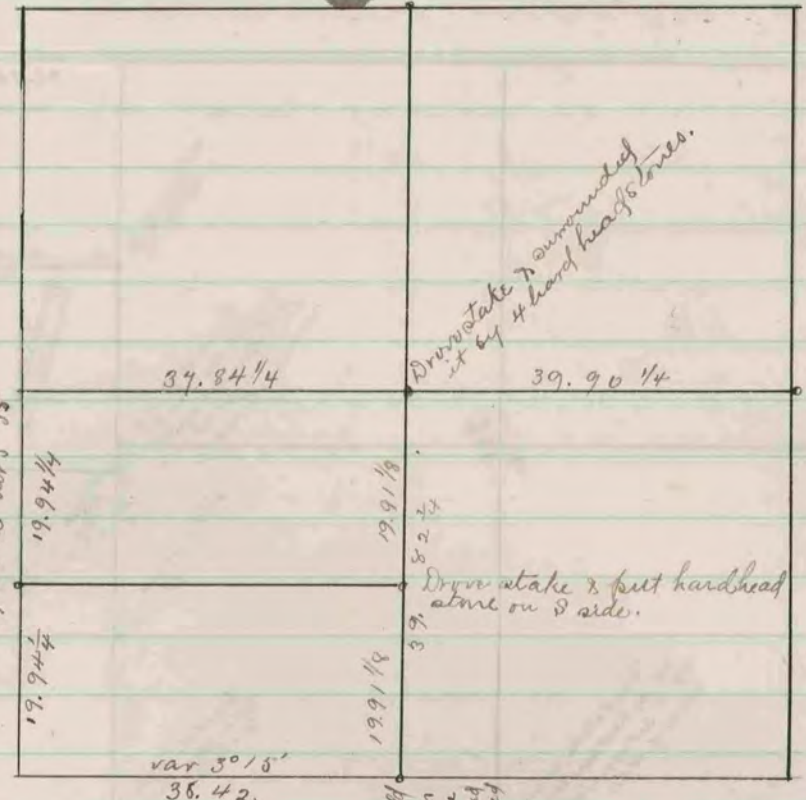 Drove stake & surrounded
it by 4 hard head stones.
37.84 1/4
39.90 1/4
19.94 1/4
19.91 1/8
39.82 1/4
Drove stake & put hardhead
stone on S side.
19.94 1/4
19.91 1/8
var 3° 15'
38.42.